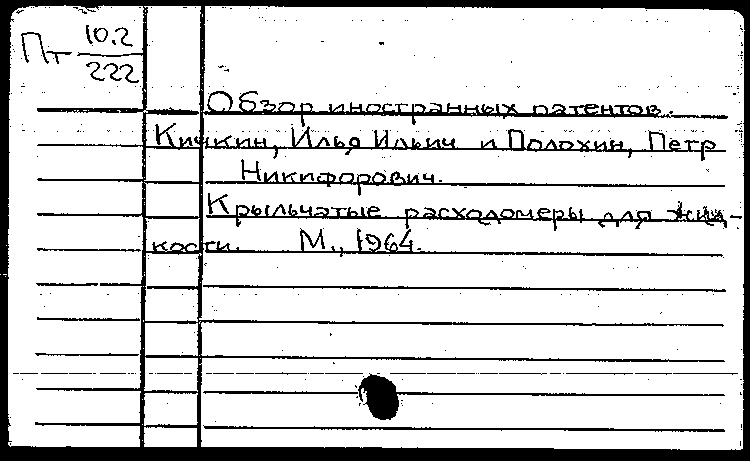 Пт 10.2
222
Обзор иностранных патентов.
Кичкин, Илья Ильич и Полохин, Петр
Никифорович.
Крыльчатые расходомеры для жид-
кости. М., 1964.